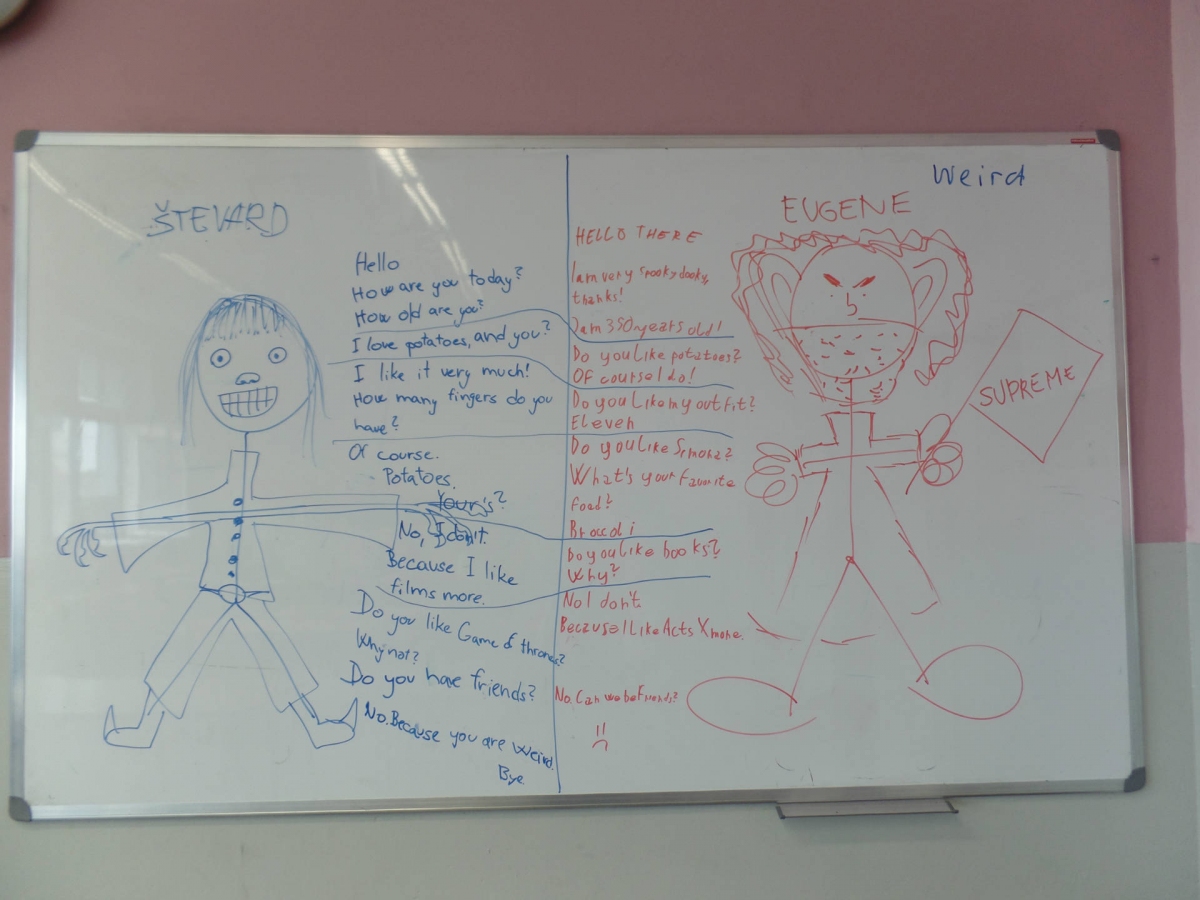 Weird
ŠTEVARD
Hello
How are you today?
How old are you?
I love potatoes, and you?
I like it very much!
How many fingers do you
have?
Of course.
Potatoes.
Your's?
No, I don't.
Because I like
films more.
Do you like Game of thrones?
Why not?
Do you have friends?
No. Because you are weird.
Bye.
EUGENE
HELLO THERE
I am very spooky dooky,
thanks!
I am 350 years old!
Do you like potatoes?
Of course I do!
Do you like my outfit?
Eleven
Do you like
What's your favorite
food?
Broccoli
Do you like books?
Why?
No I don't
Because I like Acts X more.
No. Can we be Friends?
SUPREME